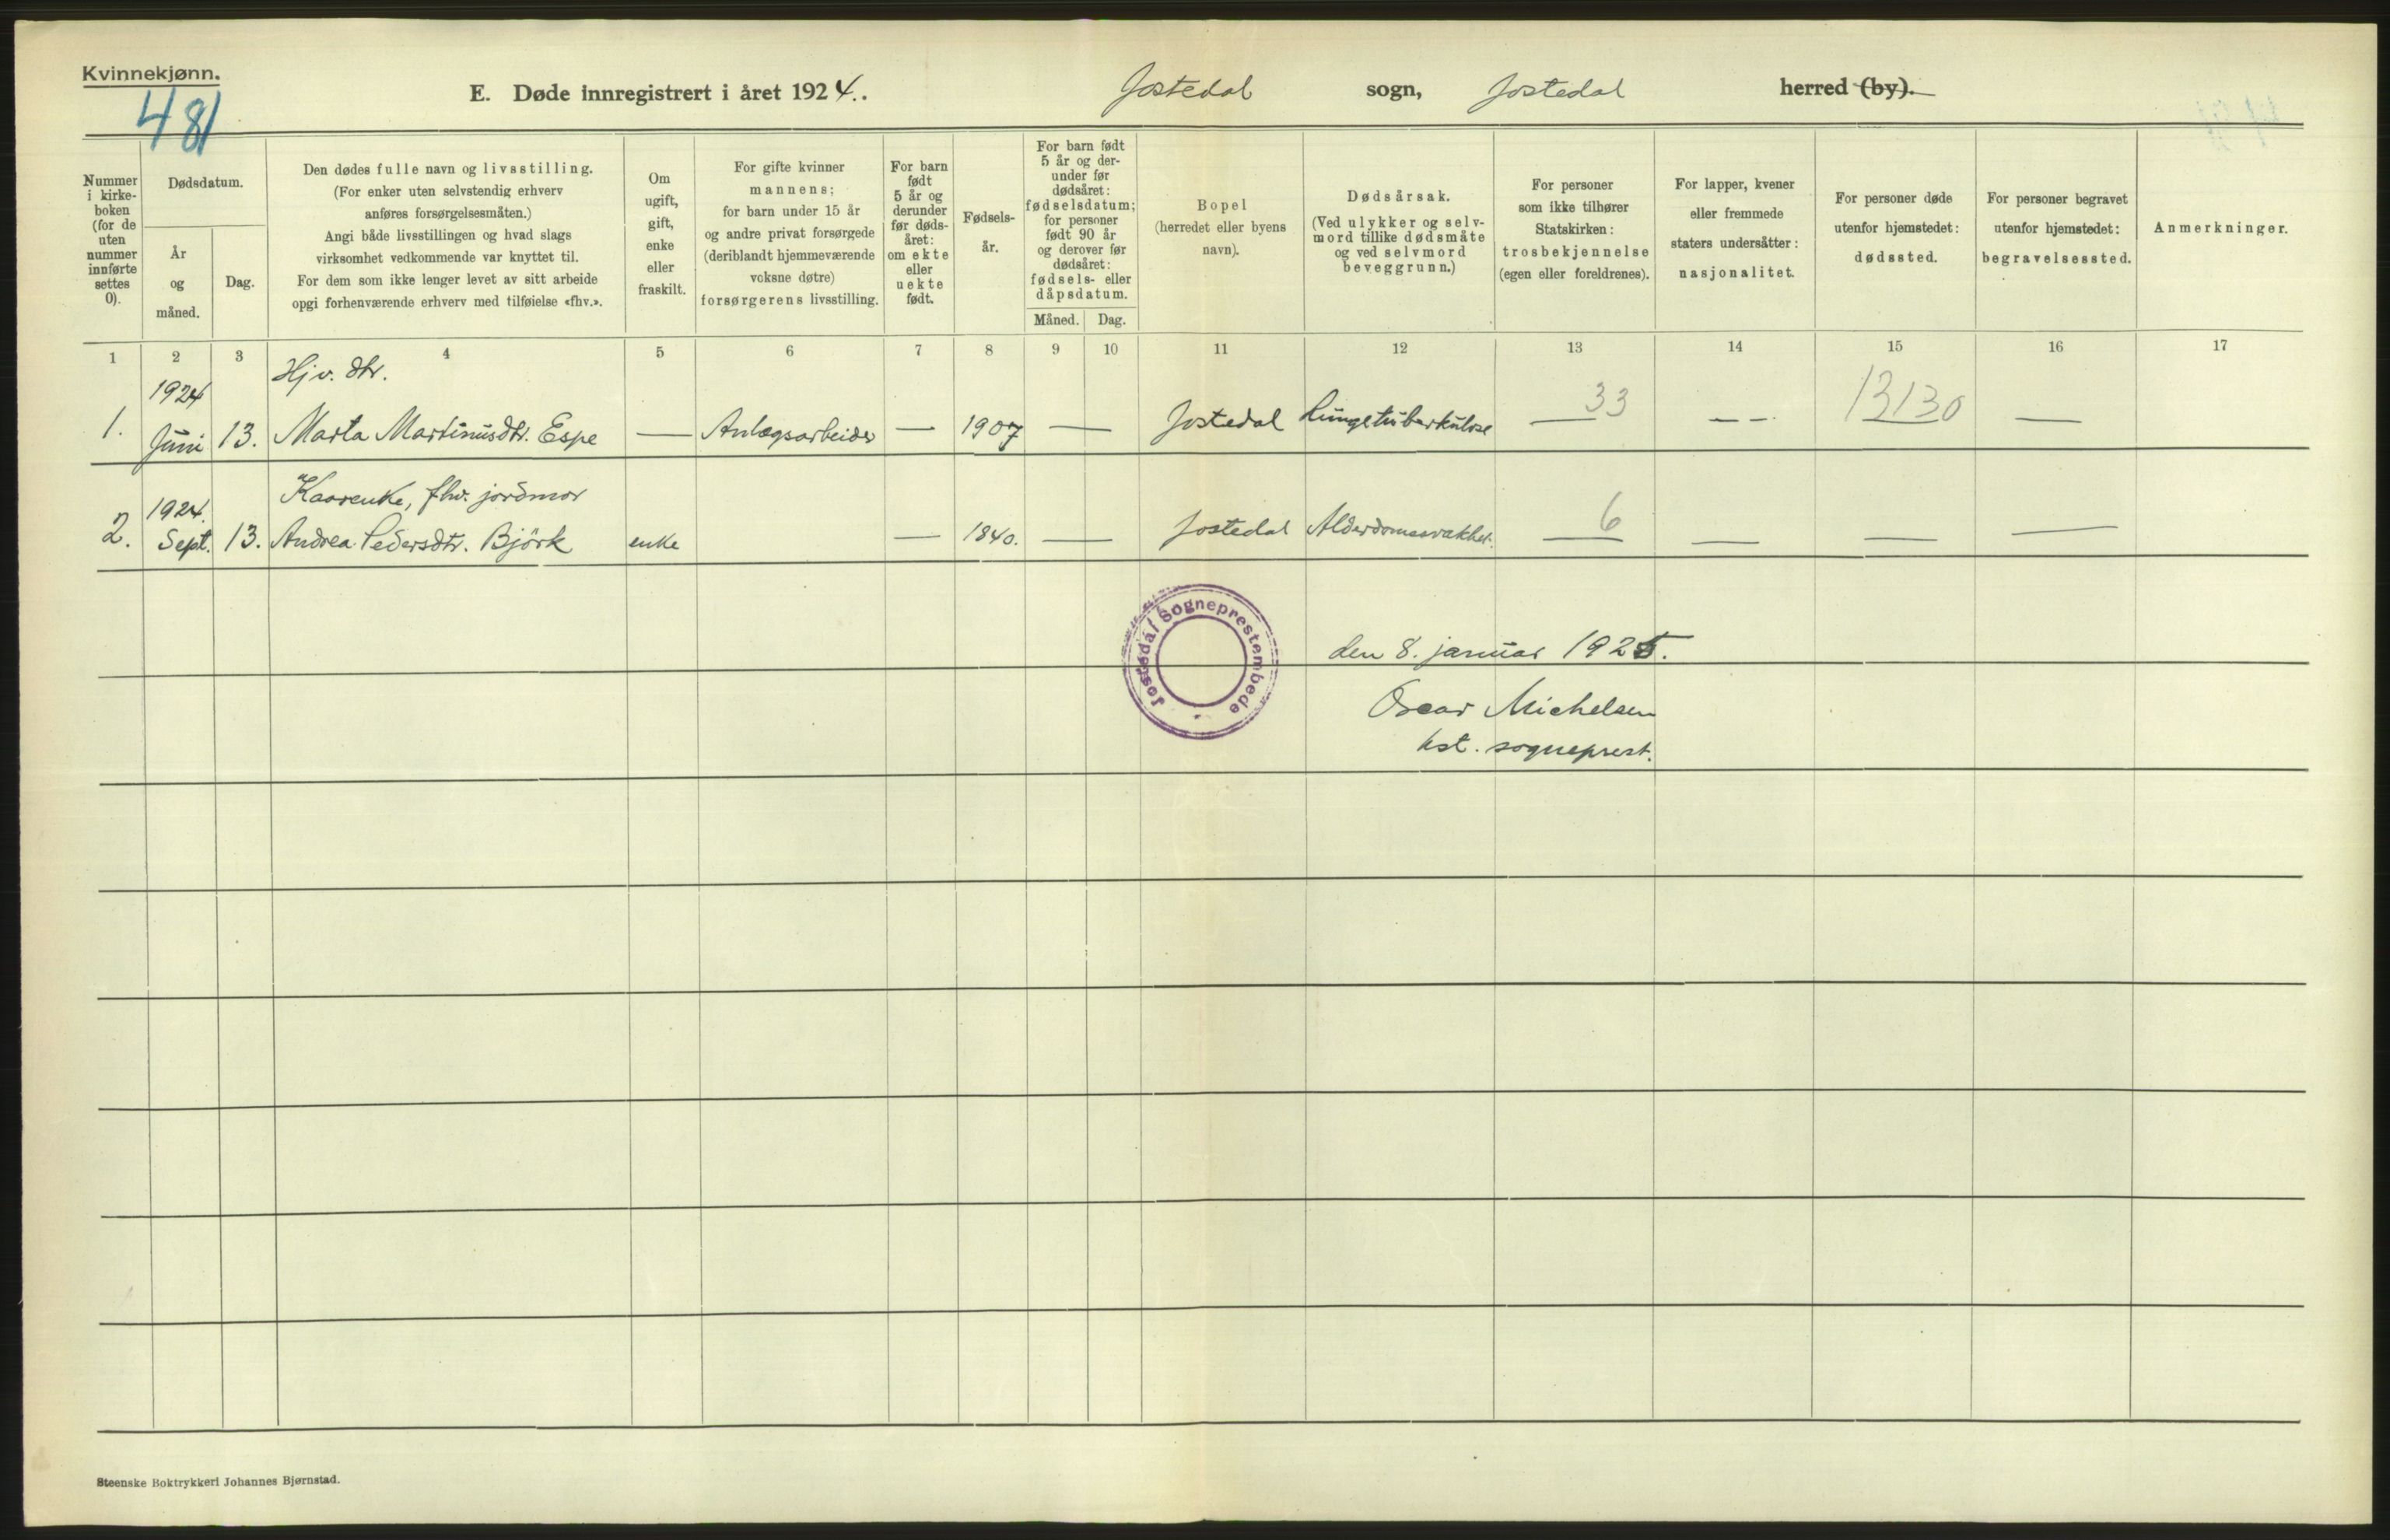 Kvinnekjønn.
481
E. Døde innregistrert i året 1924.
Jostedal sogn, Jostedal herred (by).
Nummer
i kirke-
boken
(for de
uten
nummer
innførte
settes
0).
Dødsdatum.
År
og
måned.
Dag.
Den dødes fulle navn og livsstilling.
(For enker uten selvstendig erhverv
anføres forsørgelsesmåten.)
Angi både livsstillingen og hvad slags
virksomhet vedkommende var knyttet til.
For dem som ikke lenger levet av sitt arbeide
opgi forhenværende erhverv med tilføielse «fhv.».
Om
ugift,
gift,
enke
eller
fraskilt.
For gifte kvinner
mannens;
for barn under 15 år
og andre privat forsørgede
(deriblandt hjemmeværende
voksne døtre)
forsørgerens livsstilling.
For barn
født
5 år og
derunder
før døds-
året:
om ekte
eller
uekte
født.
Fødsels-
år.
For barn født
5 år og der-
under før
dødsåret:
fødselsdatum;
for personer
født 90 år
og derover før
dødsåret:
fødsels- eller
dåpsdatum.
Måned. Dag.
Bopel
(herredet eller byens
navn).
Dødsårsak.
(Ved ulykker og selv-
mord tillike dødsmåte
og ved selvmord
beveggrunn.)
For personer
som ikke tilhører
Statskirken:
trosbekjennelse
(egen eller foreldrenes).
For lapper, kvener
eller fremmede
staters undersåtter:
nasjonalitet.
For personer døde
utenfor hjemstedet:
dødssted.
For personer begravet
utenfor hjemstedet:
begravelsessted.
Anmerkninger.
1 2 3 4 5 6 7 8 9 10 11 12 13 14 15 16 17
Hjv. dtr.
1924 33 13130
1. Juni 13. Marta Martinusdtr. Espe — Anlegsarbeider — 1907 — Jostedal Lungetuberkulose — — — —
Kaarenke, fhv. jordmor
1924. 6
2. Sept. 13. Andrea Pedersdtr. Björk enke — 1840. — Jostedal Alderdomssvakhet. — — — —
Jostedal Sogneprestembede
den 8. januar 1925.
Oscar Michelsen
kst. sogneprest.
Steenske Boktrykkeri Johannes Bjørnstad.